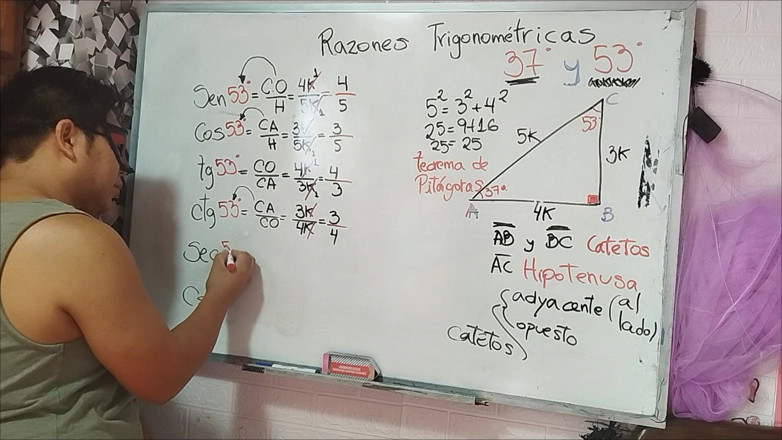 Razones Trigonométricas
37° y 53°
Sen 53° = CO/H = 4K/5K = 4/5
Cos 53° = CA/H = 3K/5K = 3/5
tg 53° = CO/CA = 4K/3K = 4/3
Ctg 53° = CA/CO = 3K/4K = 3/4
Sec 5
5² = 3² + 4²
25 = 9+16
25 = 25
teorema de
Pitágoras
C
53°
5K
3K
37°
A
4K
B
AB y BC Catetos
AC Hipotenusa
Catetos { adyacente (al lado)
opuesto